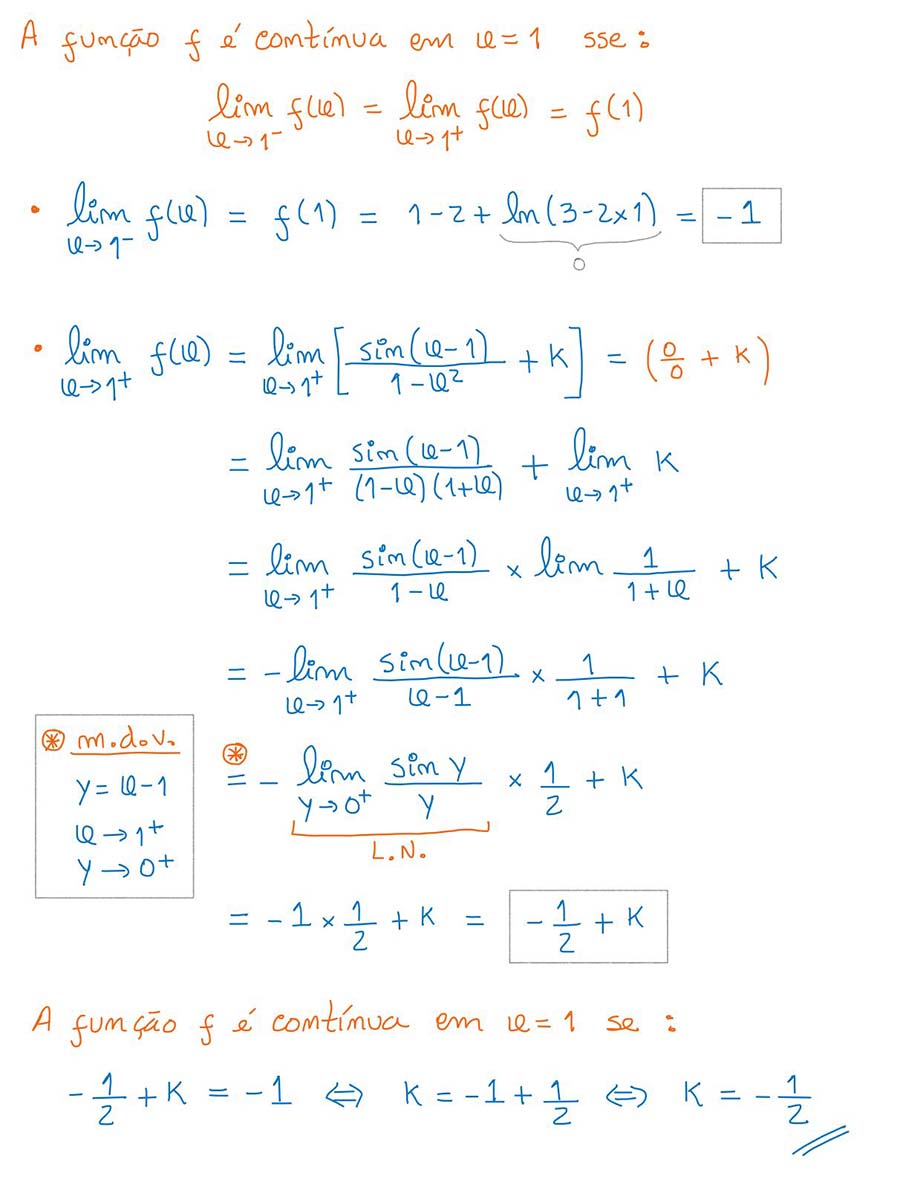 A função f é contínua em x = 1 sse :
lim x→1⁻ f(x) = lim x→1⁺ f(x) = f(1)
• lim x→1⁻ f(x) = f(1) = 1 - 2 + ln(3 - 2×1) = -1
0
• lim x→1⁺ f(x) = lim x→1⁺ [ sin(x-1) / (1-x²) + K ] = ( 0/0 + K )
= lim x→1⁺ sin(x-1) / (1-x)(1+x) + lim x→1⁺ K
= lim x→1⁺ sin(x-1) / (1-x) × lim 1/(1+x) + K
= - lim x→1⁺ sin(x-1) / (x-1) × 1/(1+1) + K
⊛ m.d.v.
y = x-1
x → 1⁺
y → 0⁺
⊛ = - lim y→0⁺ sin y / y × 1/2 + K
L.N.
= -1 × 1/2 + K = -1/2 + K
A função f é contínua em x = 1 se :
-1/2 + K = -1 ⇔ K = -1 + 1/2 ⇔ K = -1/2